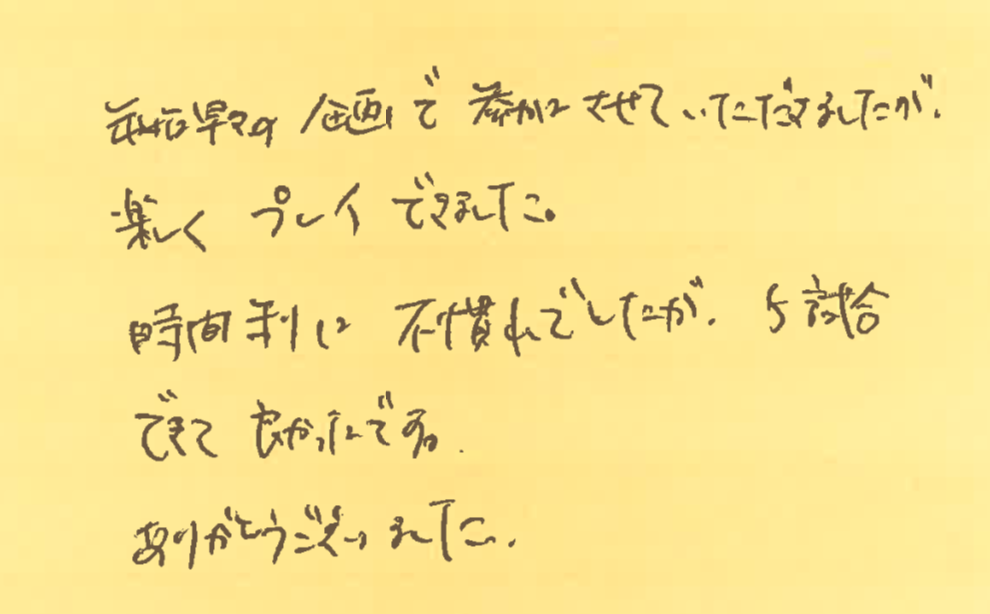 早々の企画で参加させていただきましたが、
楽しくプレイできました。
時間制に不慣れでしたが、5試合
できて良かったです。
ありがとうございました。